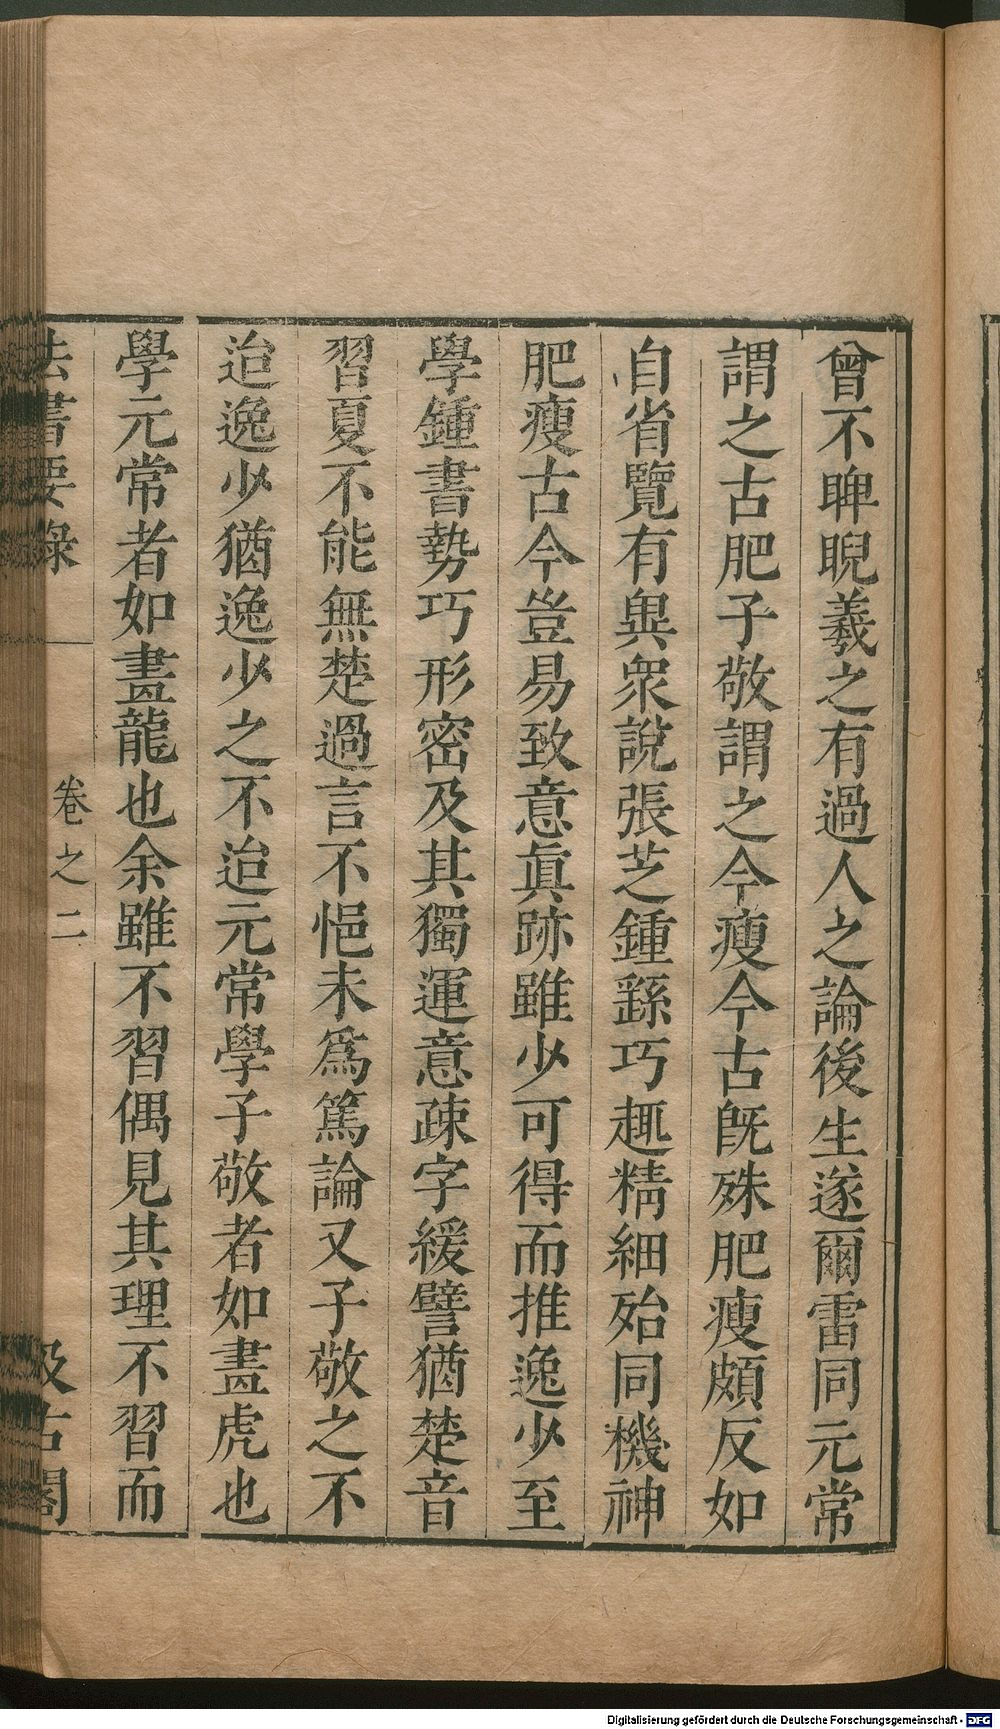 曾不睥睨羲之有過人之論後生遂爾雷同元常
謂之古肥子敬謂之今瘦今古旣殊肥瘦頗反如
自省覽有異衆說張芝鍾繇巧趣精細殆同機神
肥瘦古今豈易致意眞跡雖少可得而推逸少至
學鍾書勢巧形密及其獨運意疎字緩譬猶楚音
習夏不能無楚過言不悒未爲篤論又子敬之不
迨逸少猶逸少之不迨元常學子敬者如畫虎也
學元常者如畫龍也余雖不習偶見其理不習而
法書要錄 卷之二 汲古閣
Digitalisierung gefördert durch die Deutsche Forschungsgemeinschaft - DFG